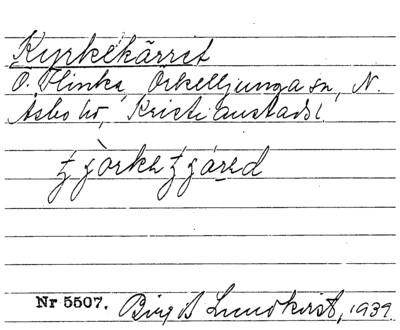 Kyrkekärrit
Ö. Flinka, Örkelljunga sn, N.
Åsbo hd, Kristianstads l.
Nr 5507. Birg. Lundkvist, 1939